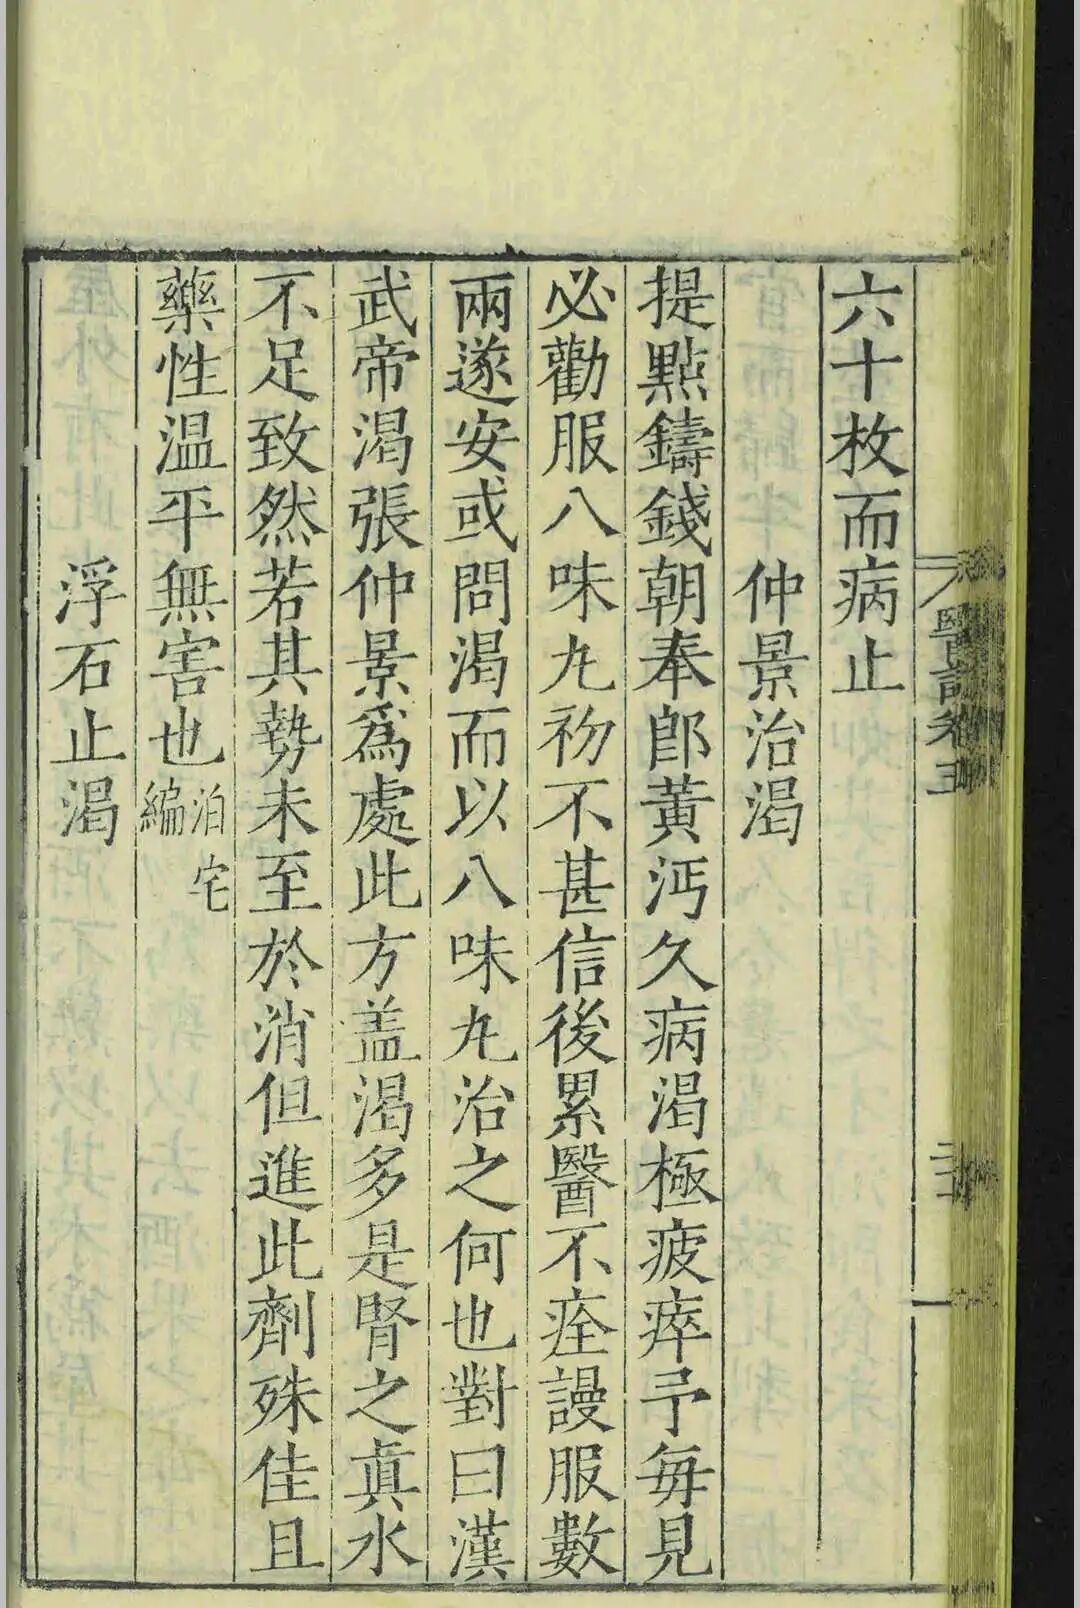 六十枚而病止
仲景治渴
提點鑄錢朝奉郎黃沔久病渴極疲瘁予每見
必勸服八味丸初不甚信後累醫不痊謾服數
兩遂安或問渴而以八味丸治之何也對曰漢
武帝渴張仲景爲處此方盖渴多是腎之真水
不足致然若其勢未至於消但進此劑殊佳且
藥性温平無害也泊宅編
浮石止渴
醫說卷五